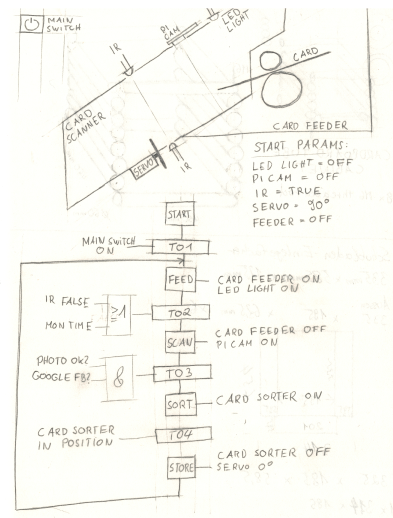 MAIN
SWITCH
IR
PI
CAM
LED
LIGHT
CARD
CARD
SCANNER
SERVO
IR
CARD FEEDER
START PARAMS:
LED LIGHT = OFF
PI CAM = OFF
IR = TRUE
SERVO = 90°
FEEDER = OFF
START
MAIN SWITCH
ON
T01
FEED
CARD FEEDER ON
LED LIGHT ON
IR FALSE
MON TIME
≥1
T02
SCAN
CARD FEEDER OFF
PI CAM ON
PHOTO OK?
GOOGLE FB?
&
T03
SORT
CARD SORTER ON
CARD SORTER
IN POSITION
T04
STORE
CARD SORTER OFF
SERVO 0°